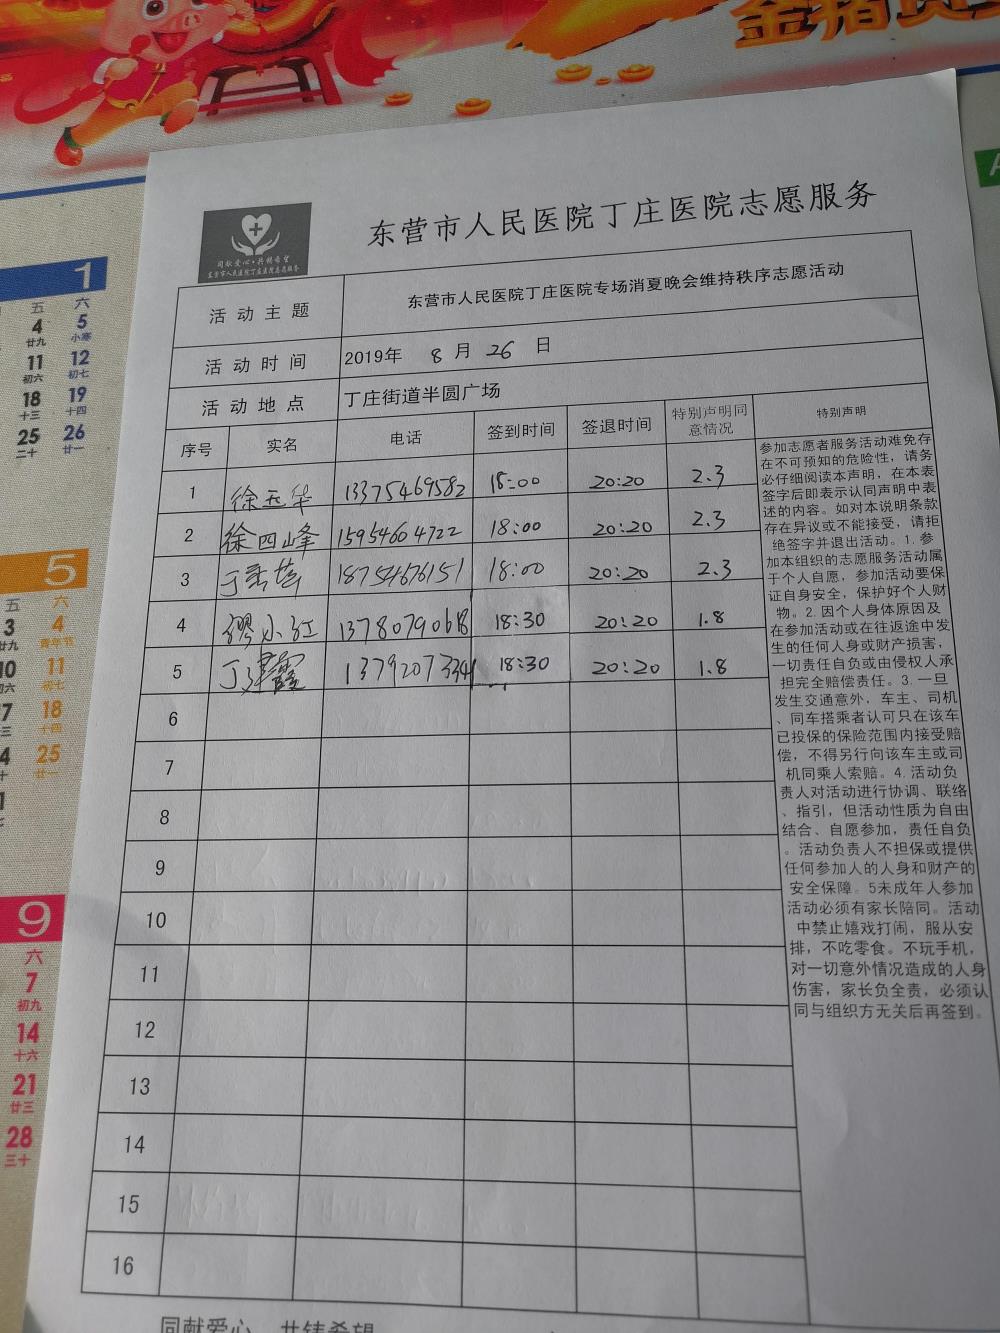 同献爱心·共铸希望
东营市人民医院丁庄医院志愿服务
东营市人民医院丁庄医院志愿服务
活动主题 东营市人民医院丁庄医院专场消夏晚会维持秩序志愿活动
活动时间 2019年 8 月 26 日
活动地点 丁庄街道半圆广场
序号 实名 电话 签到时间 签退时间 特别声明同意情况 特别声明
1 徐玉华 13375469582 18:00 20:20 2.3
2 徐四峰 15954604722 18:00 20:20 2.3
3 18754676151 18:00 20:20 2.3
4 缪小红 13780790618 18:30 20:20 1.8
5 13792073341 18:30 20:20 1.8
6
7
8
9
10
11
12
13
14
15
16
参加志愿者服务活动难免存
在不可预知的危险性，请务
必仔细阅读本声明，在本表
签字后即表示认同声明中表
述的内容。如对本说明条款
存在异议或不能接受，请拒
绝签字并退出活动。1.参
加本组织的志愿服务活动属
于个人自愿，参加活动要保
证自身安全，保护好个人财
物。2.因个人身体原因及
在参加活动或在往返途中发
生的任何人身或财产损害，
一切责任自负或由侵权人承
担完全赔偿责任。3.一旦
发生交通意外，车主、司机
、同车搭乘者认可只在该车
已投保的保险范围内接受赔
偿，不得另行向该车主或司
机同乘人索赔。4.活动负
责人对活动进行协调、联络
、指引，但活动性质为自由
结合、自愿参加，责任自负
。活动负责人不担保或提供
任何参加人的人身和财产的
安全保障。5未成年人参加
活动必须有家长陪同。活动
中禁止嬉戏打闹，服从安
排，不吃零食。不玩手机，
对一切意外情况造成的人身
伤害，家长负全责，必须认
同与组织方无关后再签到。
同献爱心 共铸希望
1
五 六
4 5
廿九 小寒
11 12
初六 初七
18 19
十三 十四
25 26
二十 廿一
5
五 六
3 4
廿九 青年节
10 11
初六 初七
18
十四
25
廿一
9
六
7
初九
14
十六
21
廿三
28
三十